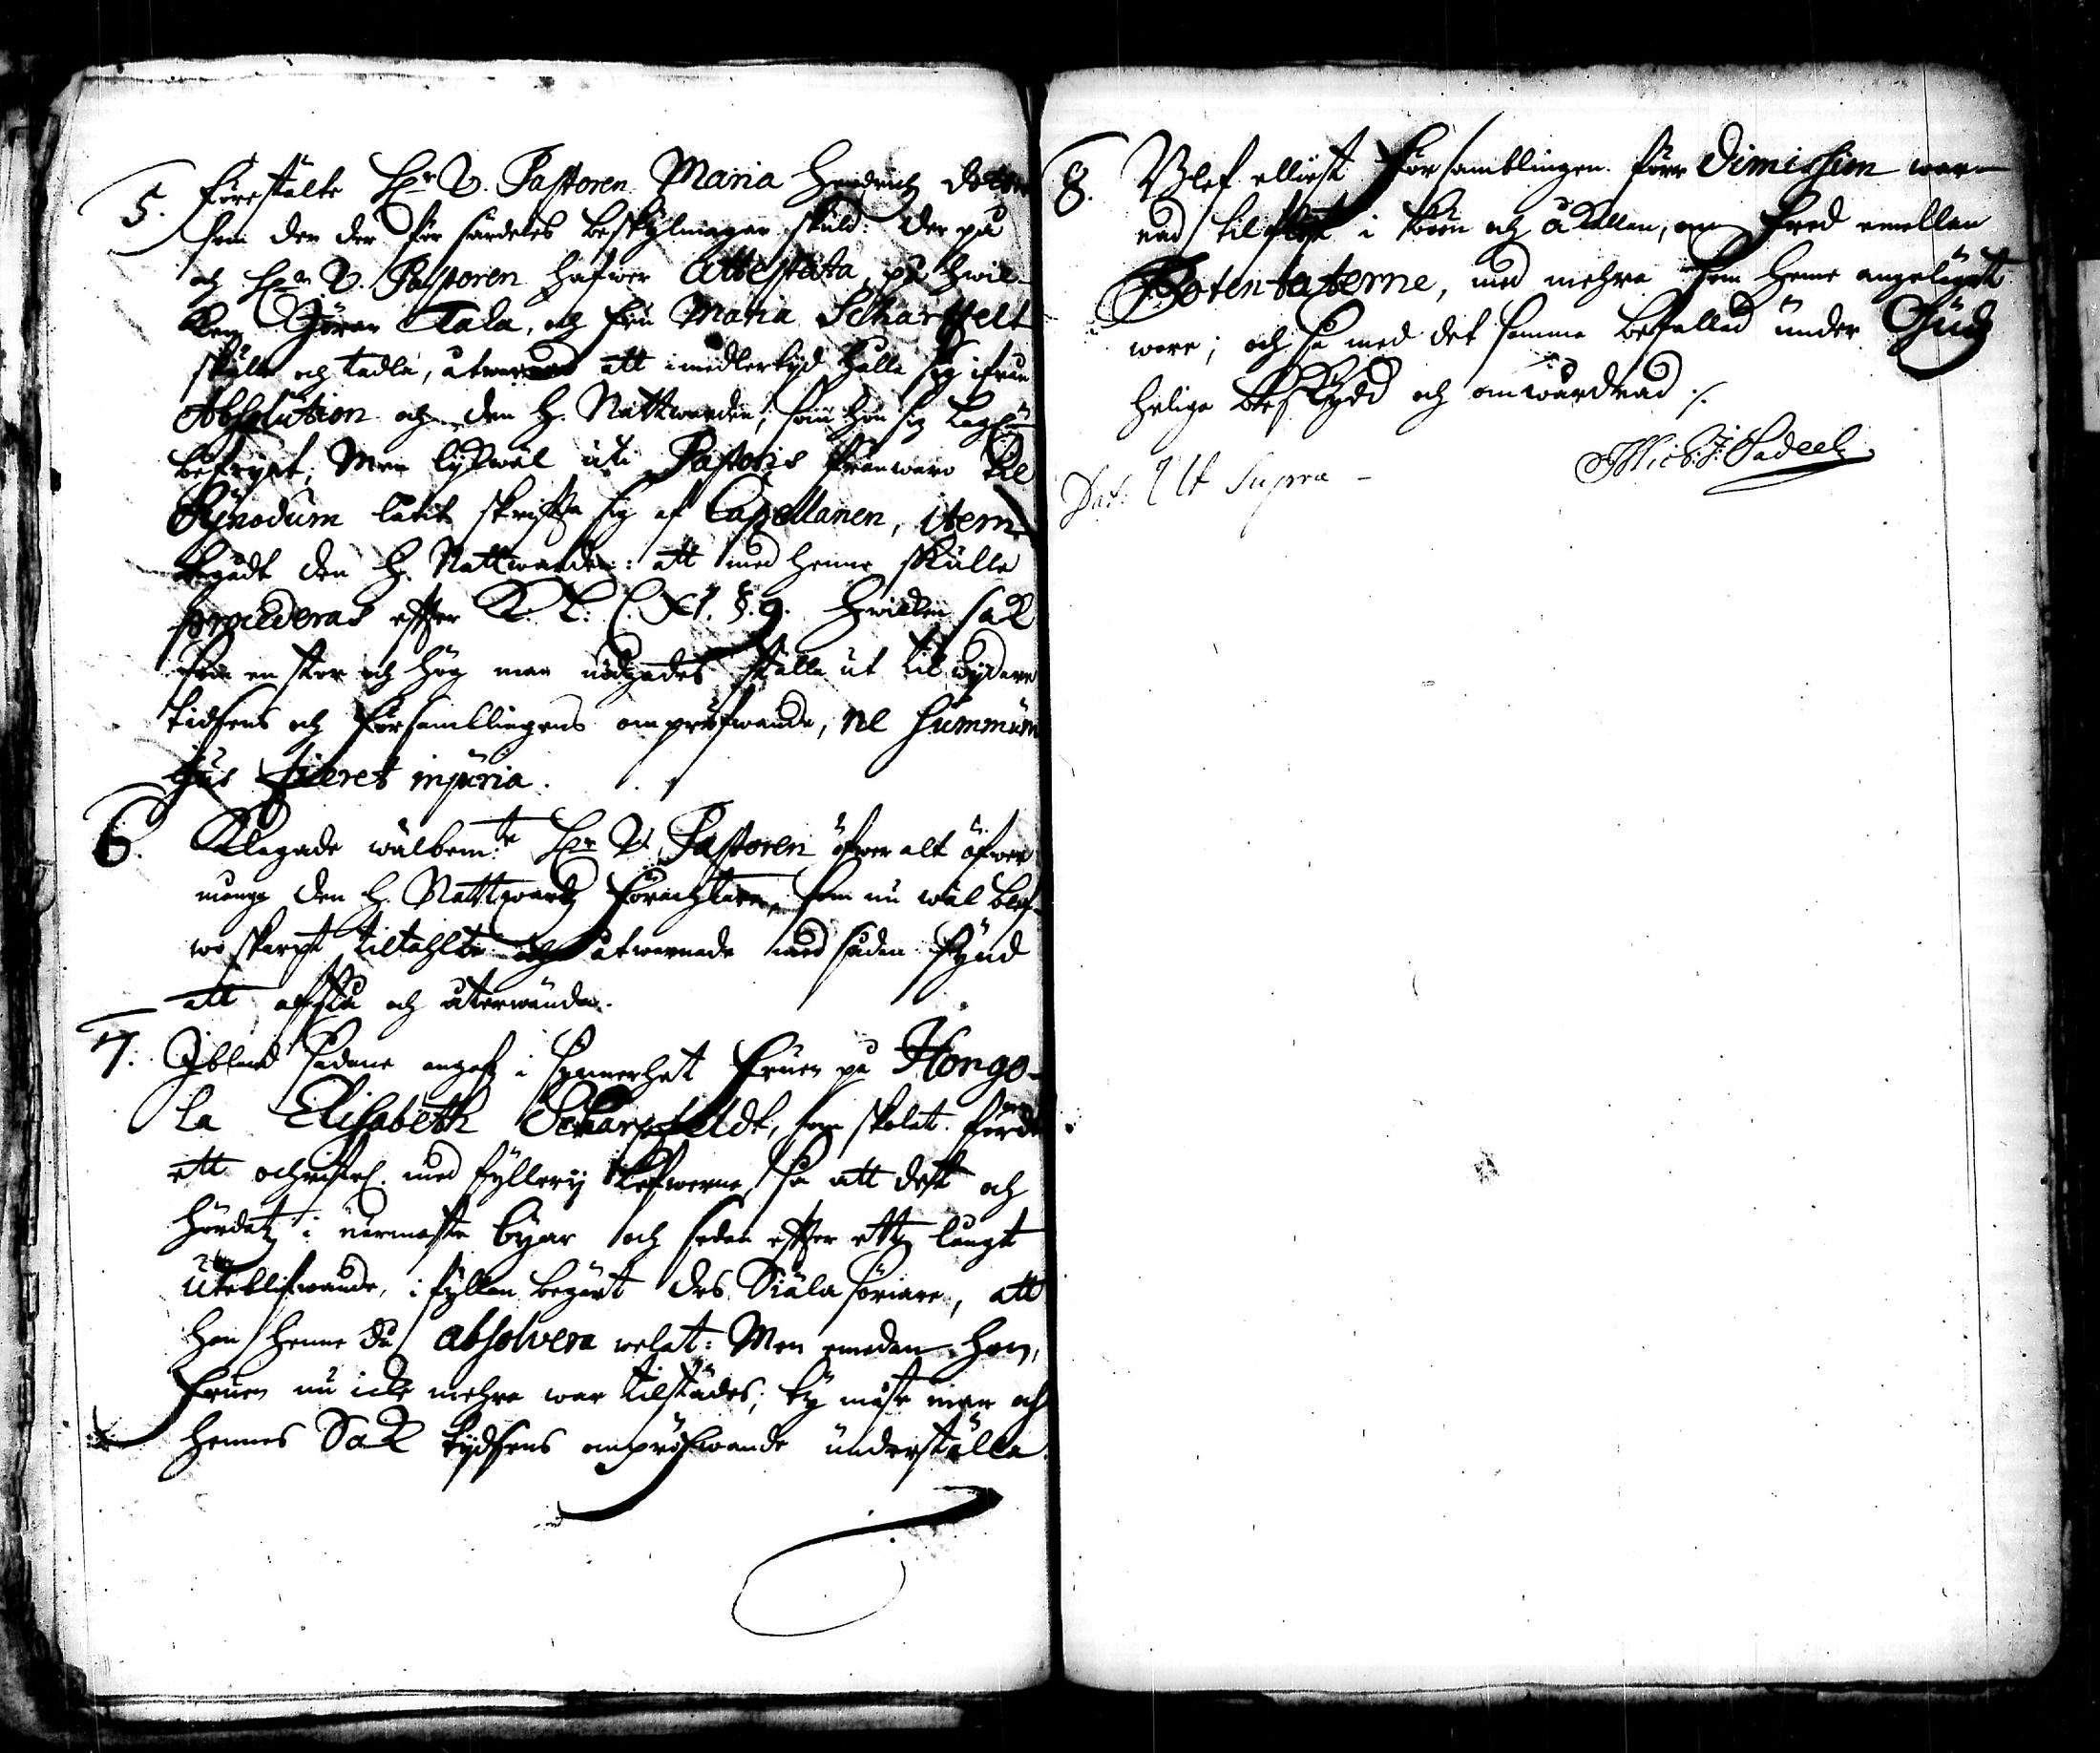 5. Förestälte H:r V. Pastoren Maria Hendrichz dotter
som den der för särdeles beskylningar skuld: der på
och H:r V. Pastoren hafwer attestata, på hwil-
ken Jöran Tala, och fru Maria Scharpfelt
skulle och tadla, att imedlertyd hålla sig ifrån
Absolution och den H. Nattwarden; som hon sig
Men lykwäl uti Pastoris frånwaro til
Synodum låtit skrifta sig af Capellanen, item
begådt den H. Nattwarden: att med henne skulle
procederas effter K. L: C. XI. §. 9. Hwilken sak
som en stor och hög man nödgades ställa ut til wydare
tidsens och församblingens ompröfwande, ne summum
jus fieret injuria.
6. Klagade wälbem:te H:r V. Pastoren öfwer alt öfwer
månge den H. Nattwardz föracktare, som nu wäl blef-
wo skarpt tiltahlte och åtwarnade med sådan synd
att afstå och återwända.
7. Ibland sådane angafz i synnerhet fruen på Hongo-
la Elisabeth Scharpfeldt, som skolat fördt
ett ochristel. med fyllery lefwerne, så att dett och
hördatz i närmaste byar och sedan effter ett långt
uteblifwande, i fyllan begärt des Siäla sörjare, att
han henne då absolvera welat: Men emedan hon,
fruen nu icke mehra war tilstädes; ty måste man och
hennes Sak tydsens ompröfwande underställa.
8. Blef elliest Församblingen förr dimission war-
nad til flyt i böön och åkallan, om fred emellan
Potentaterne, med mehra som henne angelägit
wore; och så med det samma befallad under Gudz
helige beskydd och omwårdnad ./.
Dat: Ut Supra -